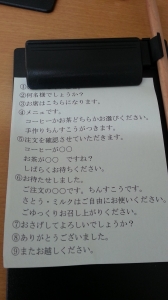 ①
②何名様でしょうか？
③お席はこちらになります。
④メニューです。
コーヒーかお茶どちらかお選びください。
手作りちんすこうがつきます。
⑤注文を確認させていただきます。
コーヒーが〇〇
お茶が〇〇　ですね？
しばらくお待ちください。
⑥お待たせしました。
ご注文の〇〇です。ちんすこうです。
さとう・ミルクはご自由にお使いください。
ごゆっくりお召し上がりください。
⑦おさげしてよろしいでしょうか？
⑧ありがとうございました。
⑨またお越しください。